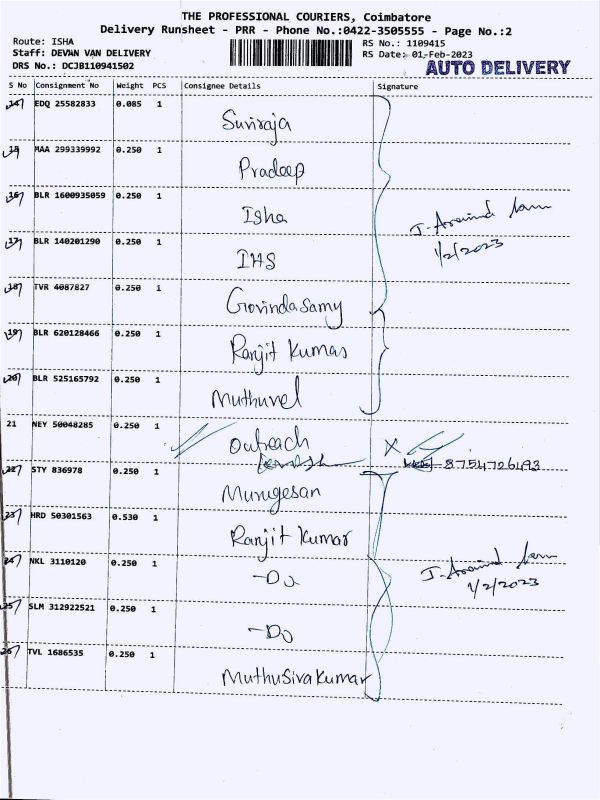 THE PROFESSIONAL COURIERS, Coimbatore
Delivery Runsheet - PRR - Phone No.:0422-3505555 - Page No.:2
Route: ISHA
RS No.: 1109415
Staff: DEVAN VAN DELIVERY
RS Date: 01-Feb-2023
DRS No.: DCJB110941502
AUTO DELIVERY
S No Consignment No Weight PCS Consignee Details Signature
14 EDQ 25582833 0.085 1
Suviraja
15 MAA 299339992 0.250 1
Pradeep
16 BLR 1600935059 0.250 1
Isha
17 BLR 140201290 0.250 1
1/2/2023
IHS
18 TVR 4087827 0.250 1
Govindasamy
19 BLR 620128466 0.250 1
Ranjit Kumar
20 BLR 525165792 0.250 1
Muthuvel
21 NEY 50048285 0.250 1
Outreach X
8754726493
22 STY 836978 0.250 1
Murugesan
23 HRD 50301563 0.530 1
Ranjit Kumar
24 NKL 3110120 0.250 1
-Do
1/2/2023
25 SLM 312922521 0.250 1
-Do
26 TVL 1686535 0.250 1
MuthuSivakumar